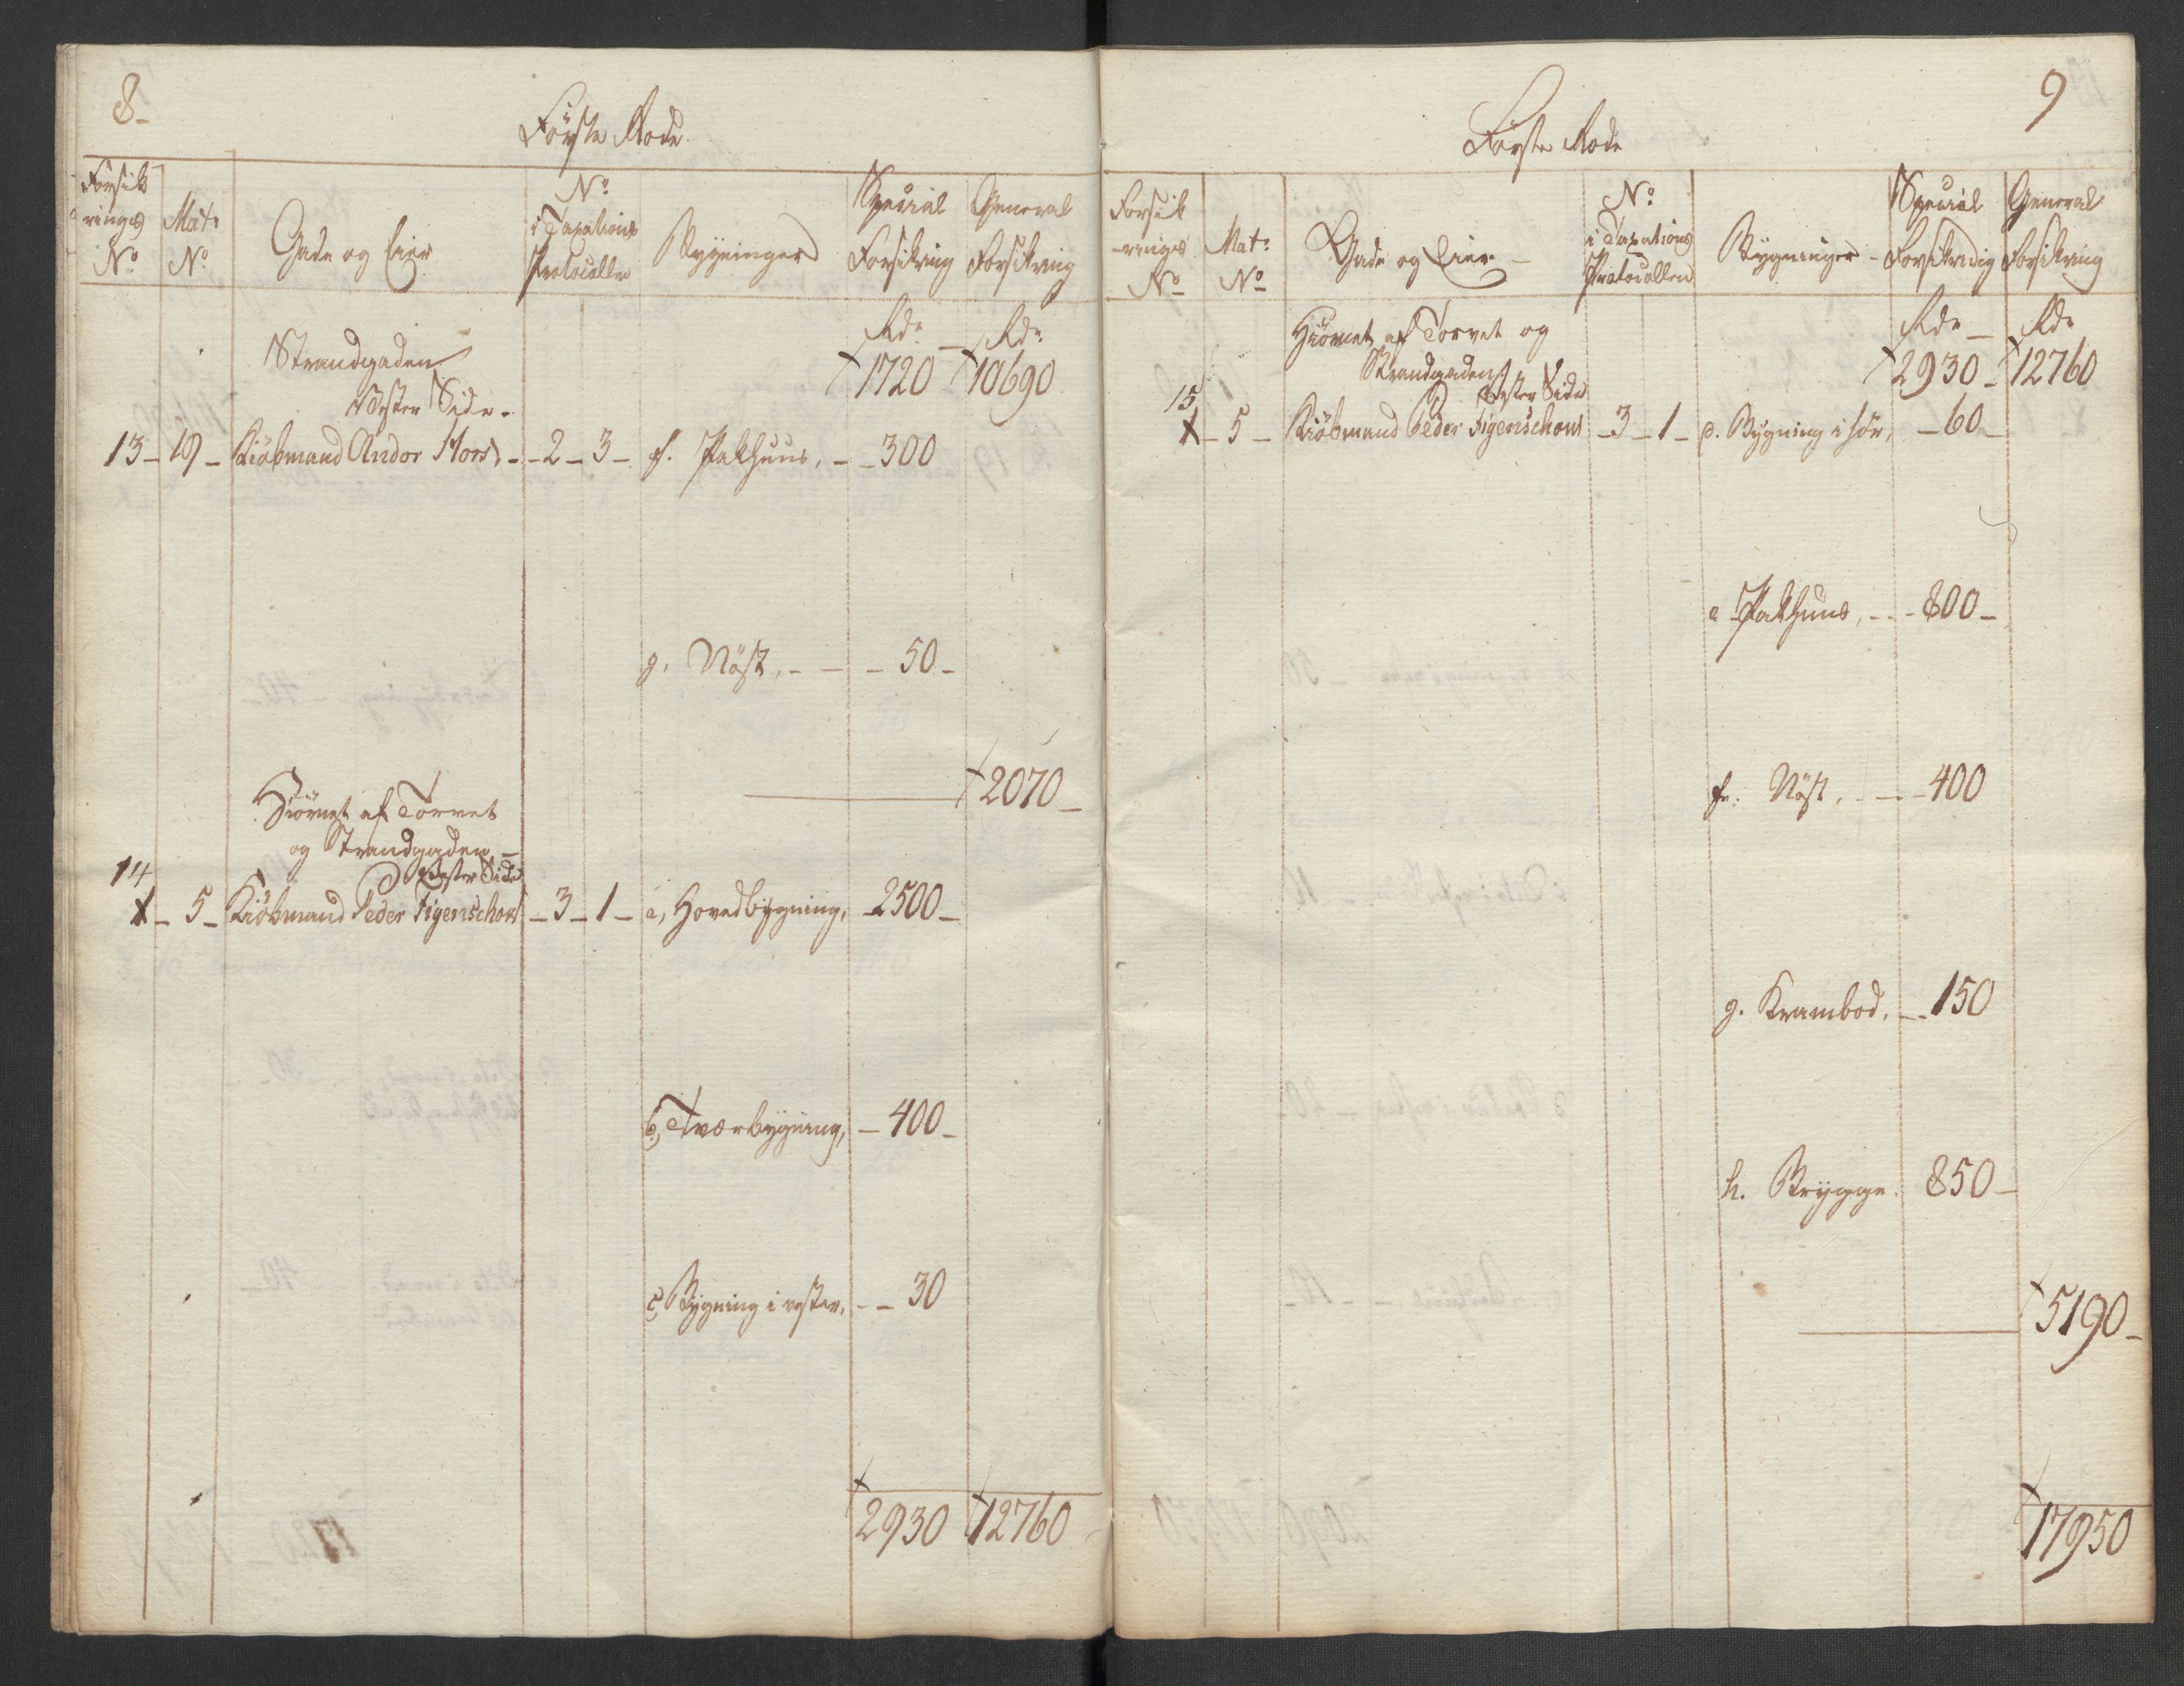 8_
Første Rode.
Forsik
rings
No
Mat:
No
Gade og Eier
No
i Taxations
Protocollen
Bygninger
Special
Forsikring
General
Forsikring
Rdr _ Rdr
Strandgaden
Vester Side.
1720 10690
13 _ 19 _ Kiøbmand Andor Mors, _ 2 _ 3 _ f. Pakhuus, _ 300
g. Nøst, _ _ _ 50 _
2070 _
Hiørnet af Torvet
og Strandgaden _
Vester Side
14
1 _ 5 _ Kiøbmand Peder Figenschous _ 3 _ 1 _ a, Hovedbygning, 2500 _
b, Tværbygning, _ 400 _
c, Bygning i vester, _ _ 30
2930 12760
9
Første Rode
Forsik
-rings
No
Mat:
No
Gade og Eier _
No
i Taxations
Protocollen
Bygninger _
Special
Forsikring
General
Forsikring
Rdr _ Rdr
Hiørnet af Torvet og
Strandgaden,
Vester Side
2930 _ 12760
15
1 _ 5 _ Kiøbmand Peder Figenschous _ 3 _ 1 _ d. Bygning i sør, _ 60 _
e Pakhuus, _ _ 800 _
f. Nøst, _ _ 400
g. Krambod, _ 150
h. Brygge. 850 _
5190 _
17950